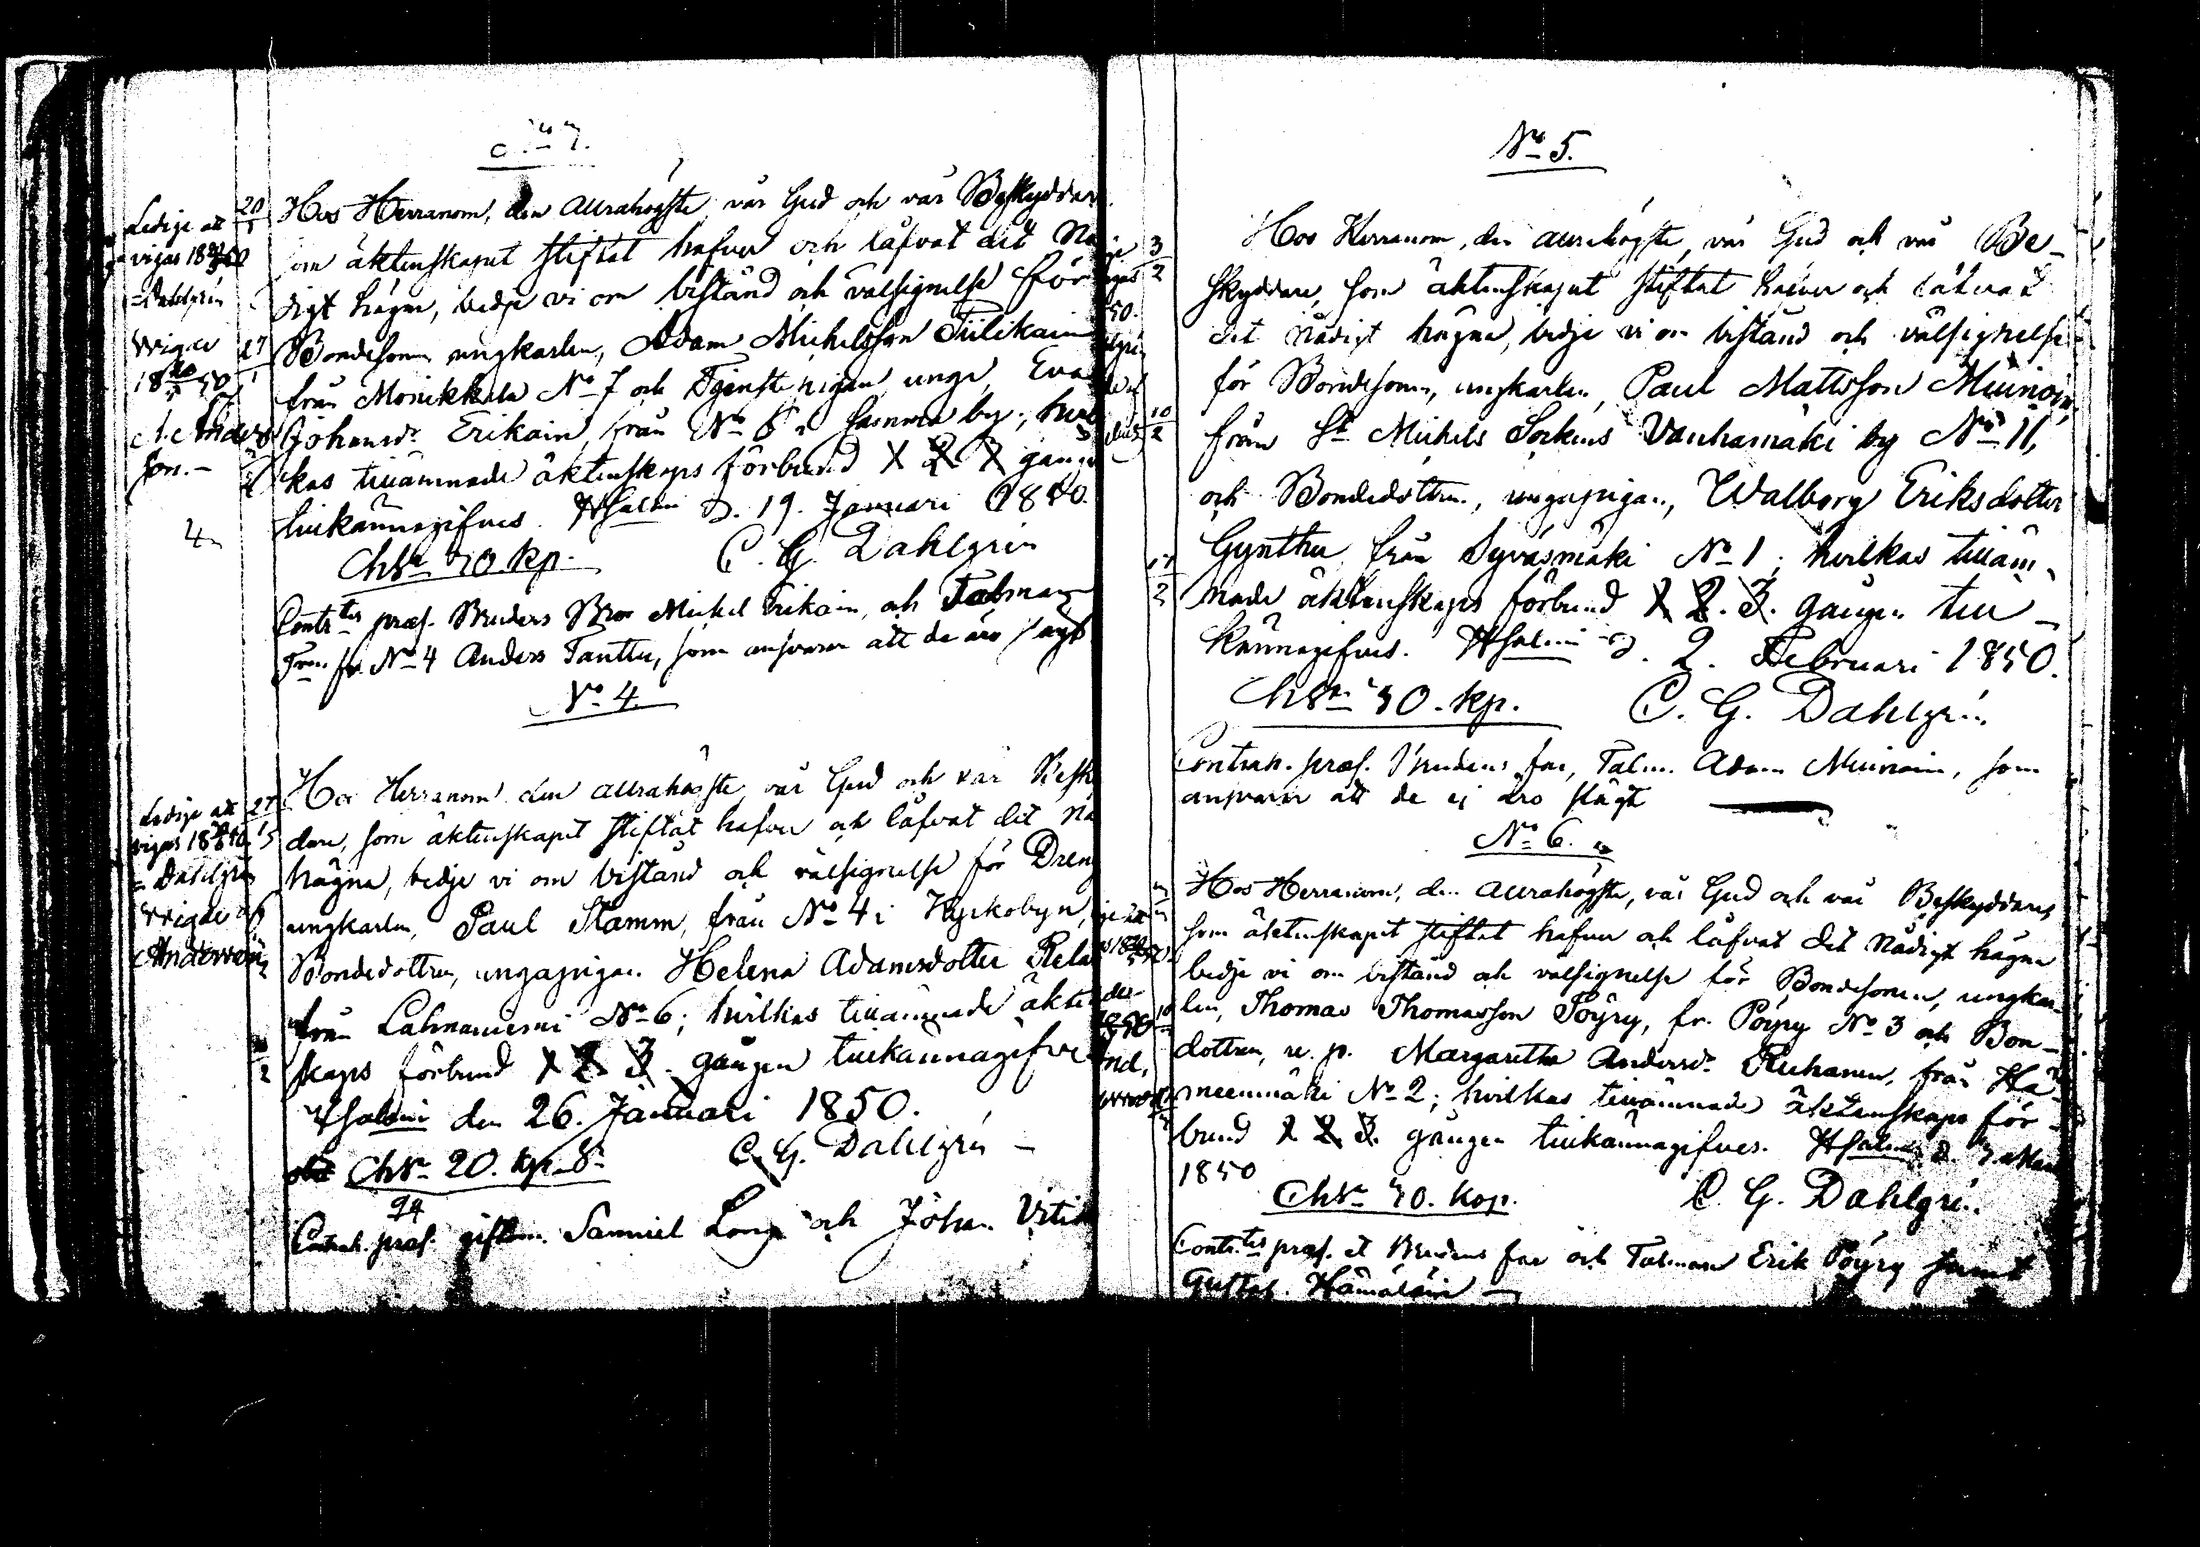 No 3.
Hos Herranom, den allrahögste, vår Gud och vår Beskyddare
som äktenskapet stiftat hafver och låfvat det Nå
digt hägna, bedje vi om bistånd och välsignelse för
Bondesonen ungkarlen, Adam Michelsson Tiilikain
från Monikkala No 7 och Tjenstepigan unge, Eva
Johansdr Erikain från No 6 i samma by; hvil
kas tillämnade äktenskaps förbund 1 2 3 gången
tillkännagifves. Hsalmi d. 19. Januari 1850.
Chsr 30. kp. C. G. Dahlgrén
Contr:tes præs. Brudens Bror Michel Erikain, och Talman
fr. No 4 Anders Tanttu, som ansvarar att de äro
Ledige att
vigas 18 50
Dahlgrén
20
1
Vigde
18 50
27
1
A. Anders
son.
No 4.
Hos Herranom den allrahögste vår Gud och vår Besk
dare, som äktenskapet stiftat hafver och låfvat det nå
hägna, bedje vi om bistånd och välsignelse för Dreng
ungkarlen, Paul Stamm, från No 4 i Kyrkobyn,
Bondedottren, ungapigan Helena Adamsdotter Rela
från Lahnaniemi No 6; hvilkas tillämnade äkten
skaps förbund 1 2 3. gången tillkännagifve
Hsalmi den 26. Januari 1850.
Chsr 20. kp. S. C. G. Dahlgrén
Contrah. præs. giftom. Samuel Long och Johan
Ledige att
vigas 18
Dahlgrén
27
1
Vigde af
Anderssen
No 5.
Hos Herranom, den allrahögste, vår Gud och vår Be-
skyddare, som äktenskapet stiftat hafver och låfvat
det Nådigt hägna, bedje vi om bistånd och välsignelse
för Bondesonen, ungkarlen, Paul Mattsson Muinoin
från St Michels Sockens Vanhamäki by No 11,
och Bondedottren, ungapigan, Walborg Eriksdotter
Gynther från Syväsmäki No 1; hvilkas tilläm-
nade äktenskaps förbund 1 2. 3. gången till-
kännagifves. Hsalmi d. 2. Februari 1850.
Chsr 30. kp. C. G. Dahlgrén
Contrah. præs. Brudens far, Talm. Adam Muinoin, som
ansvarar att de ej äro slägt
3
2
10
2
17
2
No 6.
Hos Herranom, den allrahögste, vår Gud och vår Beskyddare,
som äktenskapet stiftat hafver och låfvat det Nådigt hägna
bedje vi om bistånd och välsignelse för Bondesonen, ungkar
len, Thomas Thomasson Pöyry, fr. Pöyry No 3 och Bon-
dottren, u. p. Margaretha Andersdr Ruhanen, från Hä
meenmäki No 2; hvilkas tillämnade äktenskaps för-
bund 1 2 3. gången tillkännagifves. Hsalmi d.
1850
Chsr 30. kop. C. G. Dahlgrén
Contr:tes præs. et Brudens far och Talman Erik Pöyry samt
Gustaf. Hämäläin